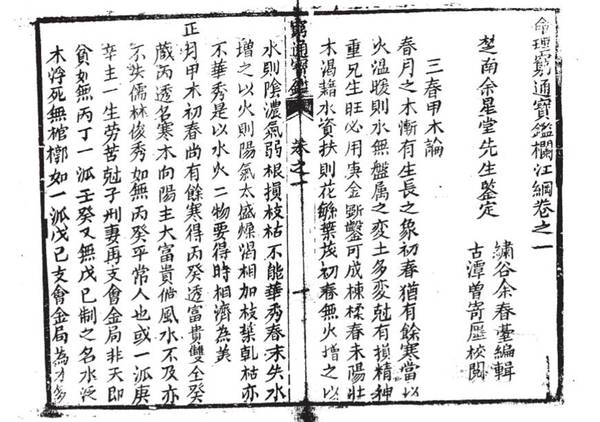 命理窮通寶鑑欄江網卷之一
楚南余星堂先生鑒定
繡谷余春臺編輯
古潭曾寄歷校閱
三春甲木論
春月之木漸有生長之象初春猶有餘寒當以
火溫暖則水無盤屈之变土多变尅有損精神
重見生旺必用庚金斲鑿可成棟樑春末陽壯
木渴藉水資扶則花繁葉茂初春無火增之以
窮通寶鑑
卷之一
一
水則陰濃氣弱根損枝枯不能華秀春末失水
增之以火則陽氣太盛燥渴相加枝葉乹枯亦
不華秀是以水火二物要得時相濟為美
正月甲木初春尚有餘寒得丙癸透富貴雙全癸
藏丙透名寒木向陽主大富貴倘風水不及亦
不失儒林俊秀如無丙癸平常人也或一派庚
辛主一生勞苦尅子刑妻再支會金局非夭即
貧如無丙丁一派壬癸又無戊己制之名水泛
木浮死無棺槨如一派戊己支會金局為才多